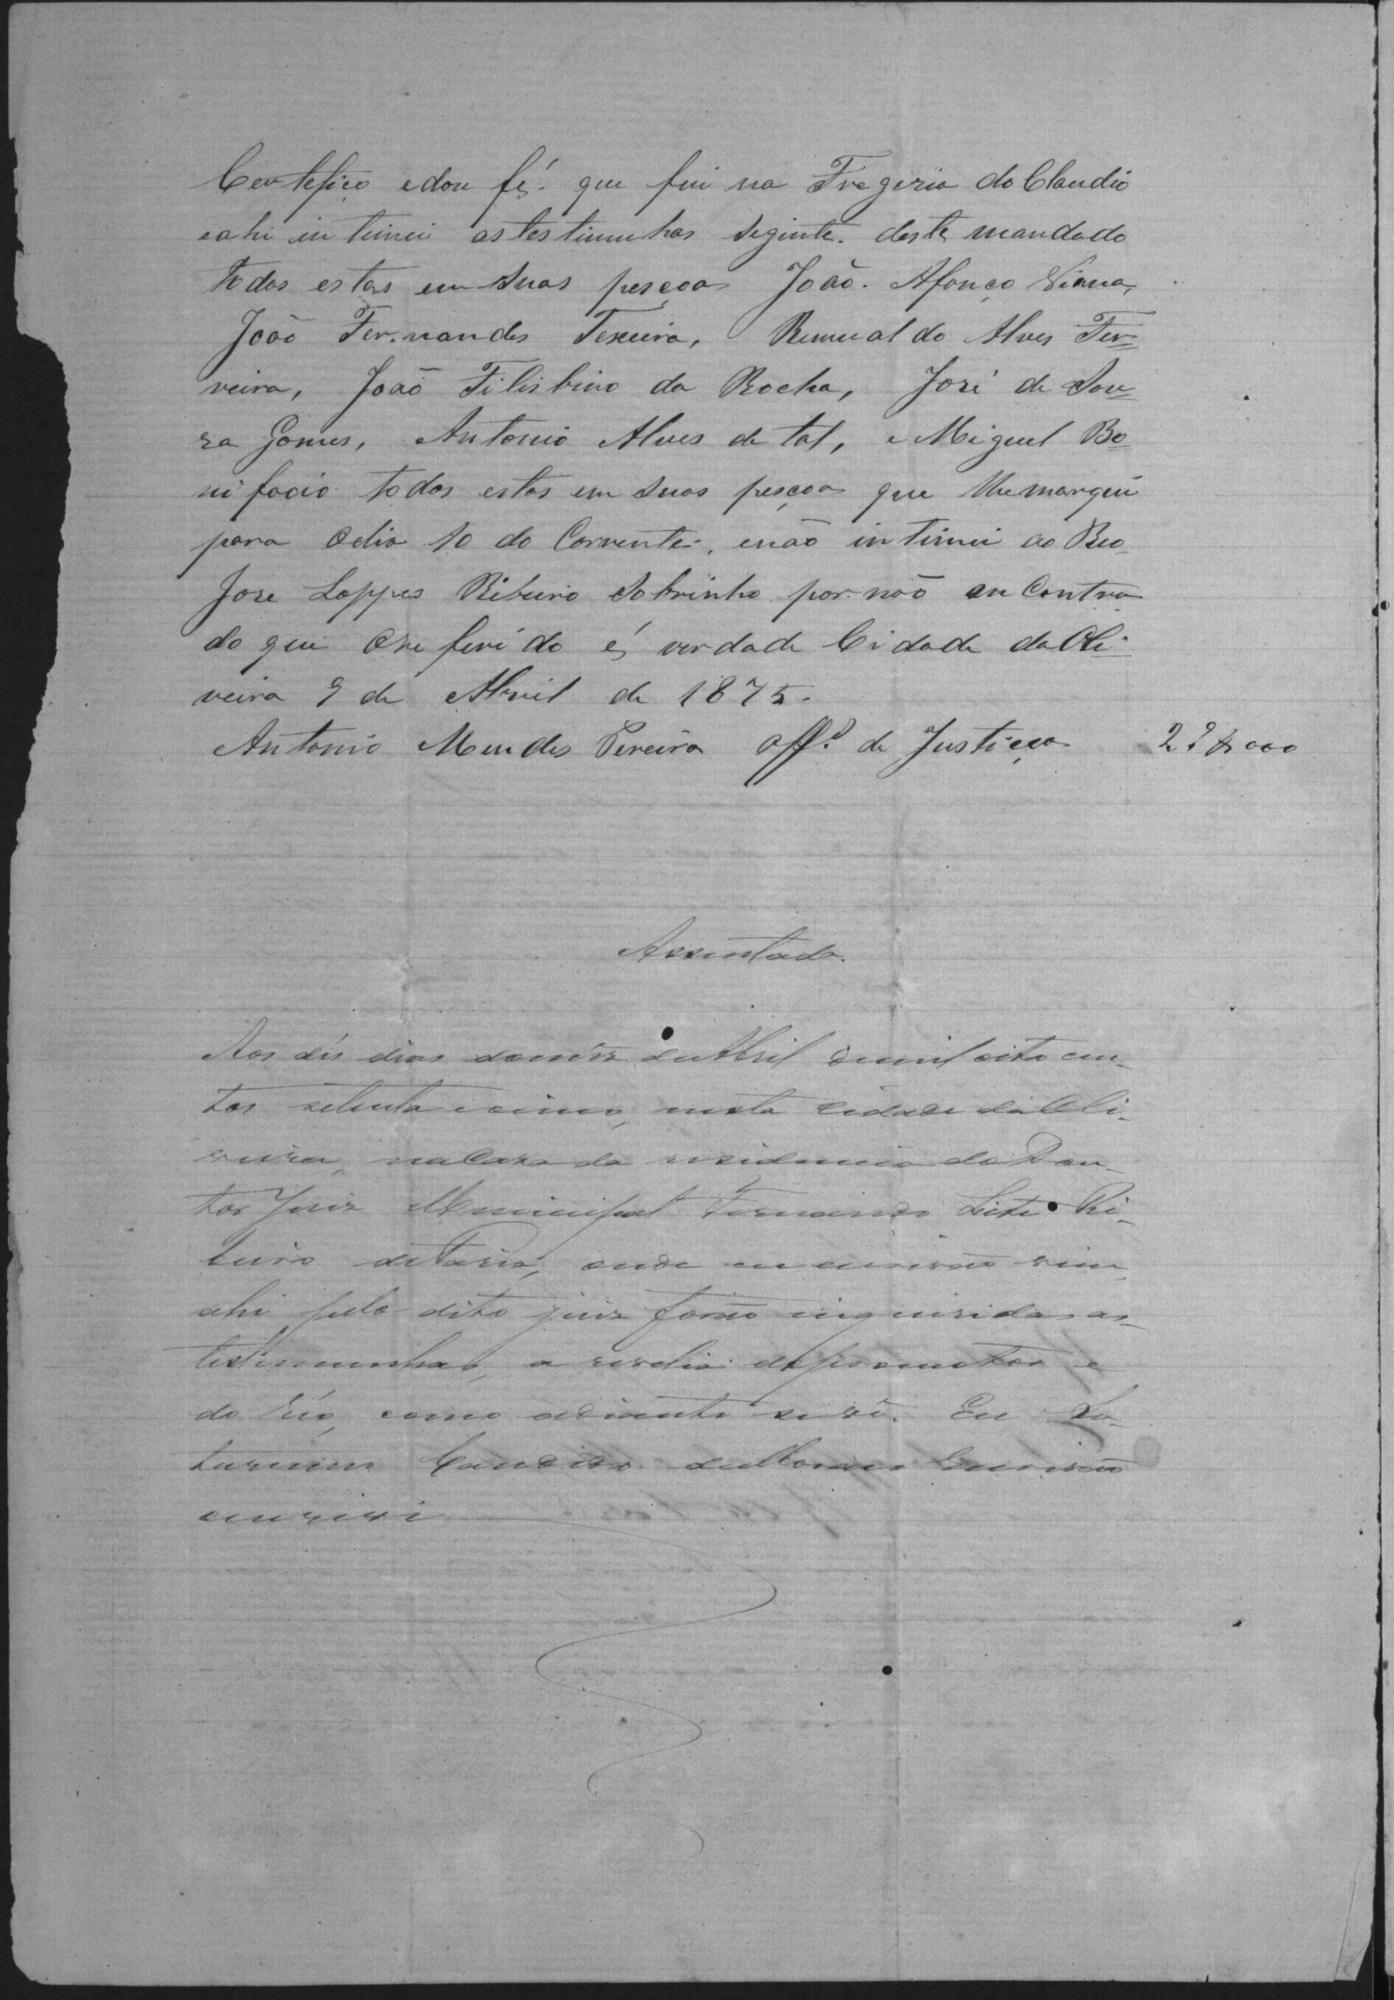 Certefico edou fé. que fui na Fregezia do Claudio
eahi intimei astestimunhas seginte. deste mandado
todos estas em suas peçoas João. Afonço Viana,
João Fernandes Texeira, Rumualdo Alves Fer-
reira, João Filisbino da Rocha, José de Sou-
za Gomes, Antonio Alves de tal, e Miguel Bo-
nifacio todos estas em suas peçoas que lhe marquei
para odia 10 do Corrente. enão intimei ao Reo
Jose Loppes Ribeiro Sobrinho por não en Contra
do que oreferido é verdade Cidade da Oli-
veira 9 de Abril de 1875.
Antonio Mendes Pereira Off.al de Justiça
Assentada.
Aos dés dias domês de Abril demil oito cen-
tos setenta ecinco, nesta cidade da Oli-
veira, naCaza da residencia do Dou-
tor Juiz Municipal Fernando Leite Ri-
beiro de Faria, onde eu escrivão vim,
ahi pelo dito juiz forão inquiridas as
testimunhas, a revelia do promotor e
do réo, como adiante se vê. Eu Sa-
turnino Candido de Moraes Escrivão
escrevi